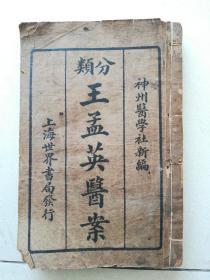 神州醫學社新編
分類
王孟英醫案
上海世界書局發行